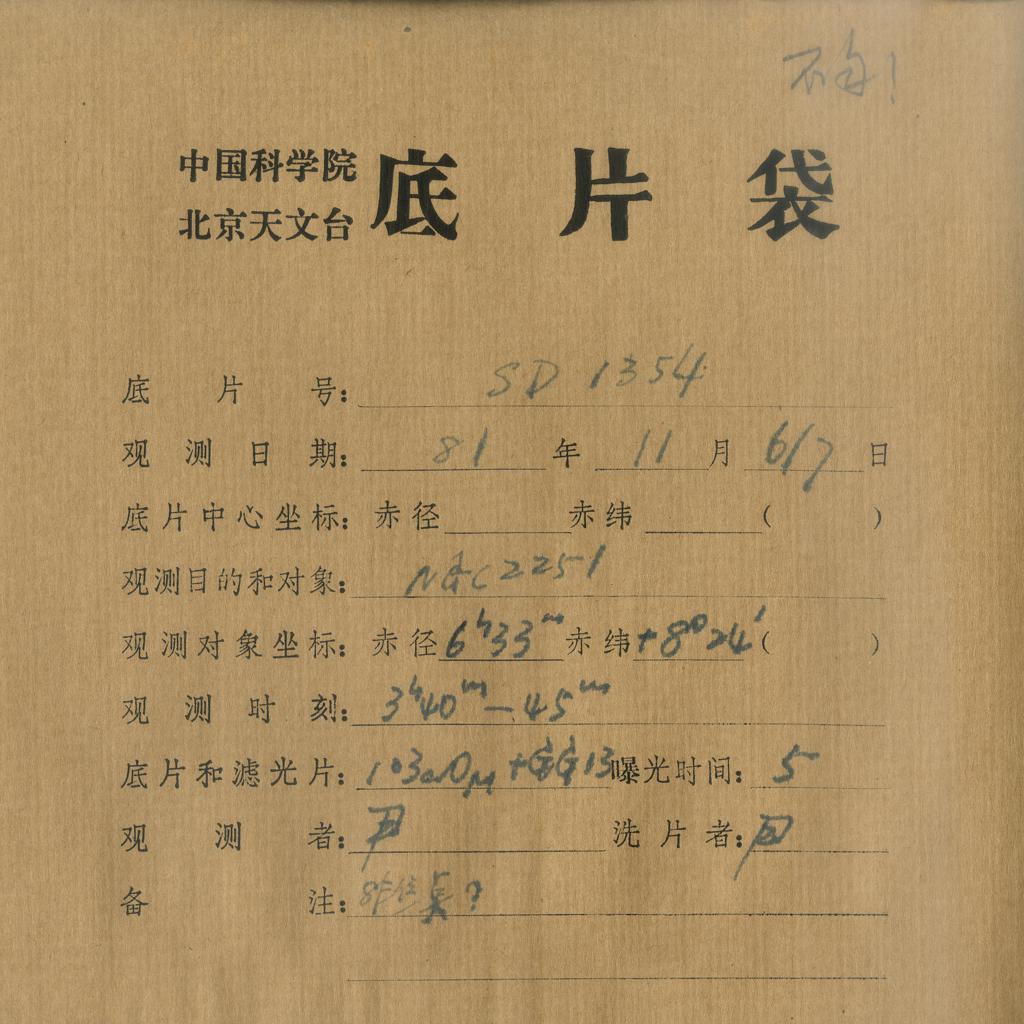 中国科学院
北京天文台
底片袋
底片号: SD 1354
观测日期: 81年 11月 6/7日
底片中心坐标: 赤径 赤纬 ( )
观测目的和对象: NGC2251
观测对象坐标: 赤径 6ʰ33ᵐ 赤纬 +8°24′ ( )
观测时刻: 3ʰ40ᵐ—45ᵐ
底片和滤光片: 103aO + GG13 曝光时间: 5
观测者: 尹 洗片者: 尹
备注: